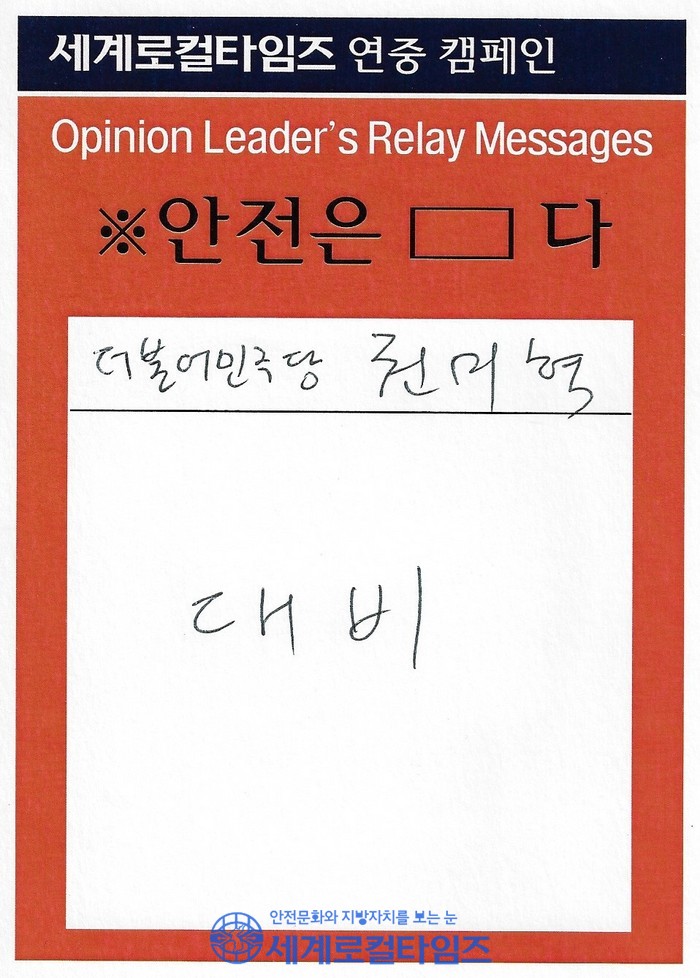 세계로컬타임즈 연중 캠페인
Opinion Leader's Relay Messages
※안전은 ▭ 다
더불어민주당 권미혁
대비
안전문화와 지방자치를 보는 눈
세계로컬타임즈